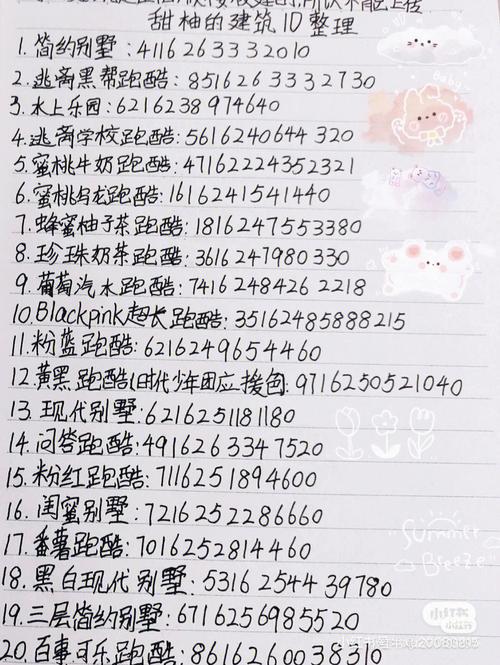 甜柚的建筑ID整理
1. 简约别墅：4116263332010
2. 逃离黑帮跑酷：8516263332730
3. 水上乐园：6216238974640
4. 逃离学校跑酷：5616240644320
5. 蜜桃牛奶跑酷：47162224352321
6. 蜜桃乌龙跑酷：1616241541440
7. 蜂蜜柚子茶跑酷：1816247553380
8. 珍珠奶茶跑酷：3616247980330
9. 葡萄汽水跑酷：7416248426 2218
10. Blackpink超长跑酷：35162485888215
11. 粉蓝跑酷：6216249654460
12. 黄黑跑酷(时代少年团应援色：9716250521040
13. 现代别墅：6216251181180
14. 问答跑酷：4916263347520
15. 粉红跑酷：7116251894600
16. 闺蜜别墅：7216252286660
17. 番薯跑酷：7016252814460
18. 黑白现代别墅：5316254439780
19. 三层简约别墅：6716256985520
20. 百事可乐跑酷：8616260038310
Baby
Summer
Breeze
小红书